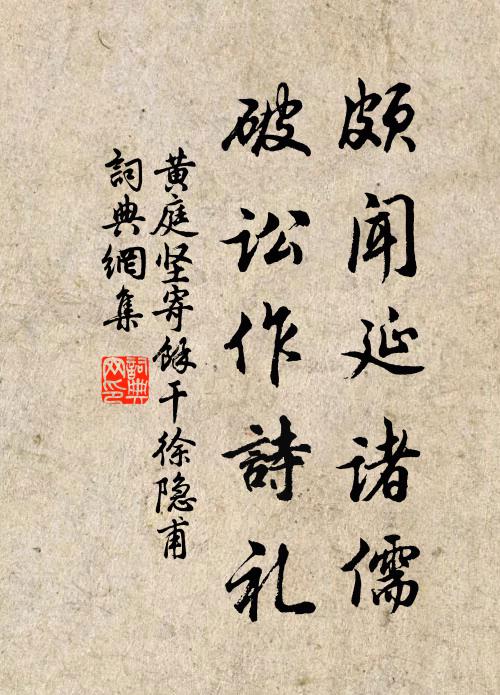 颇闻延诸儒
破讼作詩礼
黄庭坚寄餘干徐隐甫
詞典網集
詞典网印